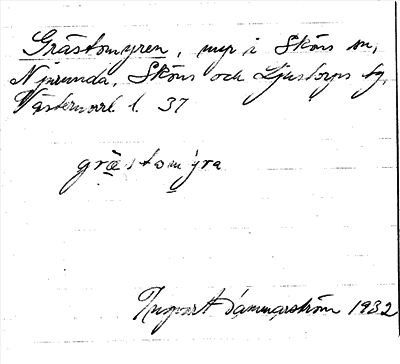 Gråstomyren, myr i Sköns sn,
Njurunda, Sköns och Ljustorps tg,
Västernorrl l. 37
gråstomýra
Ingvart Dammarström 1932